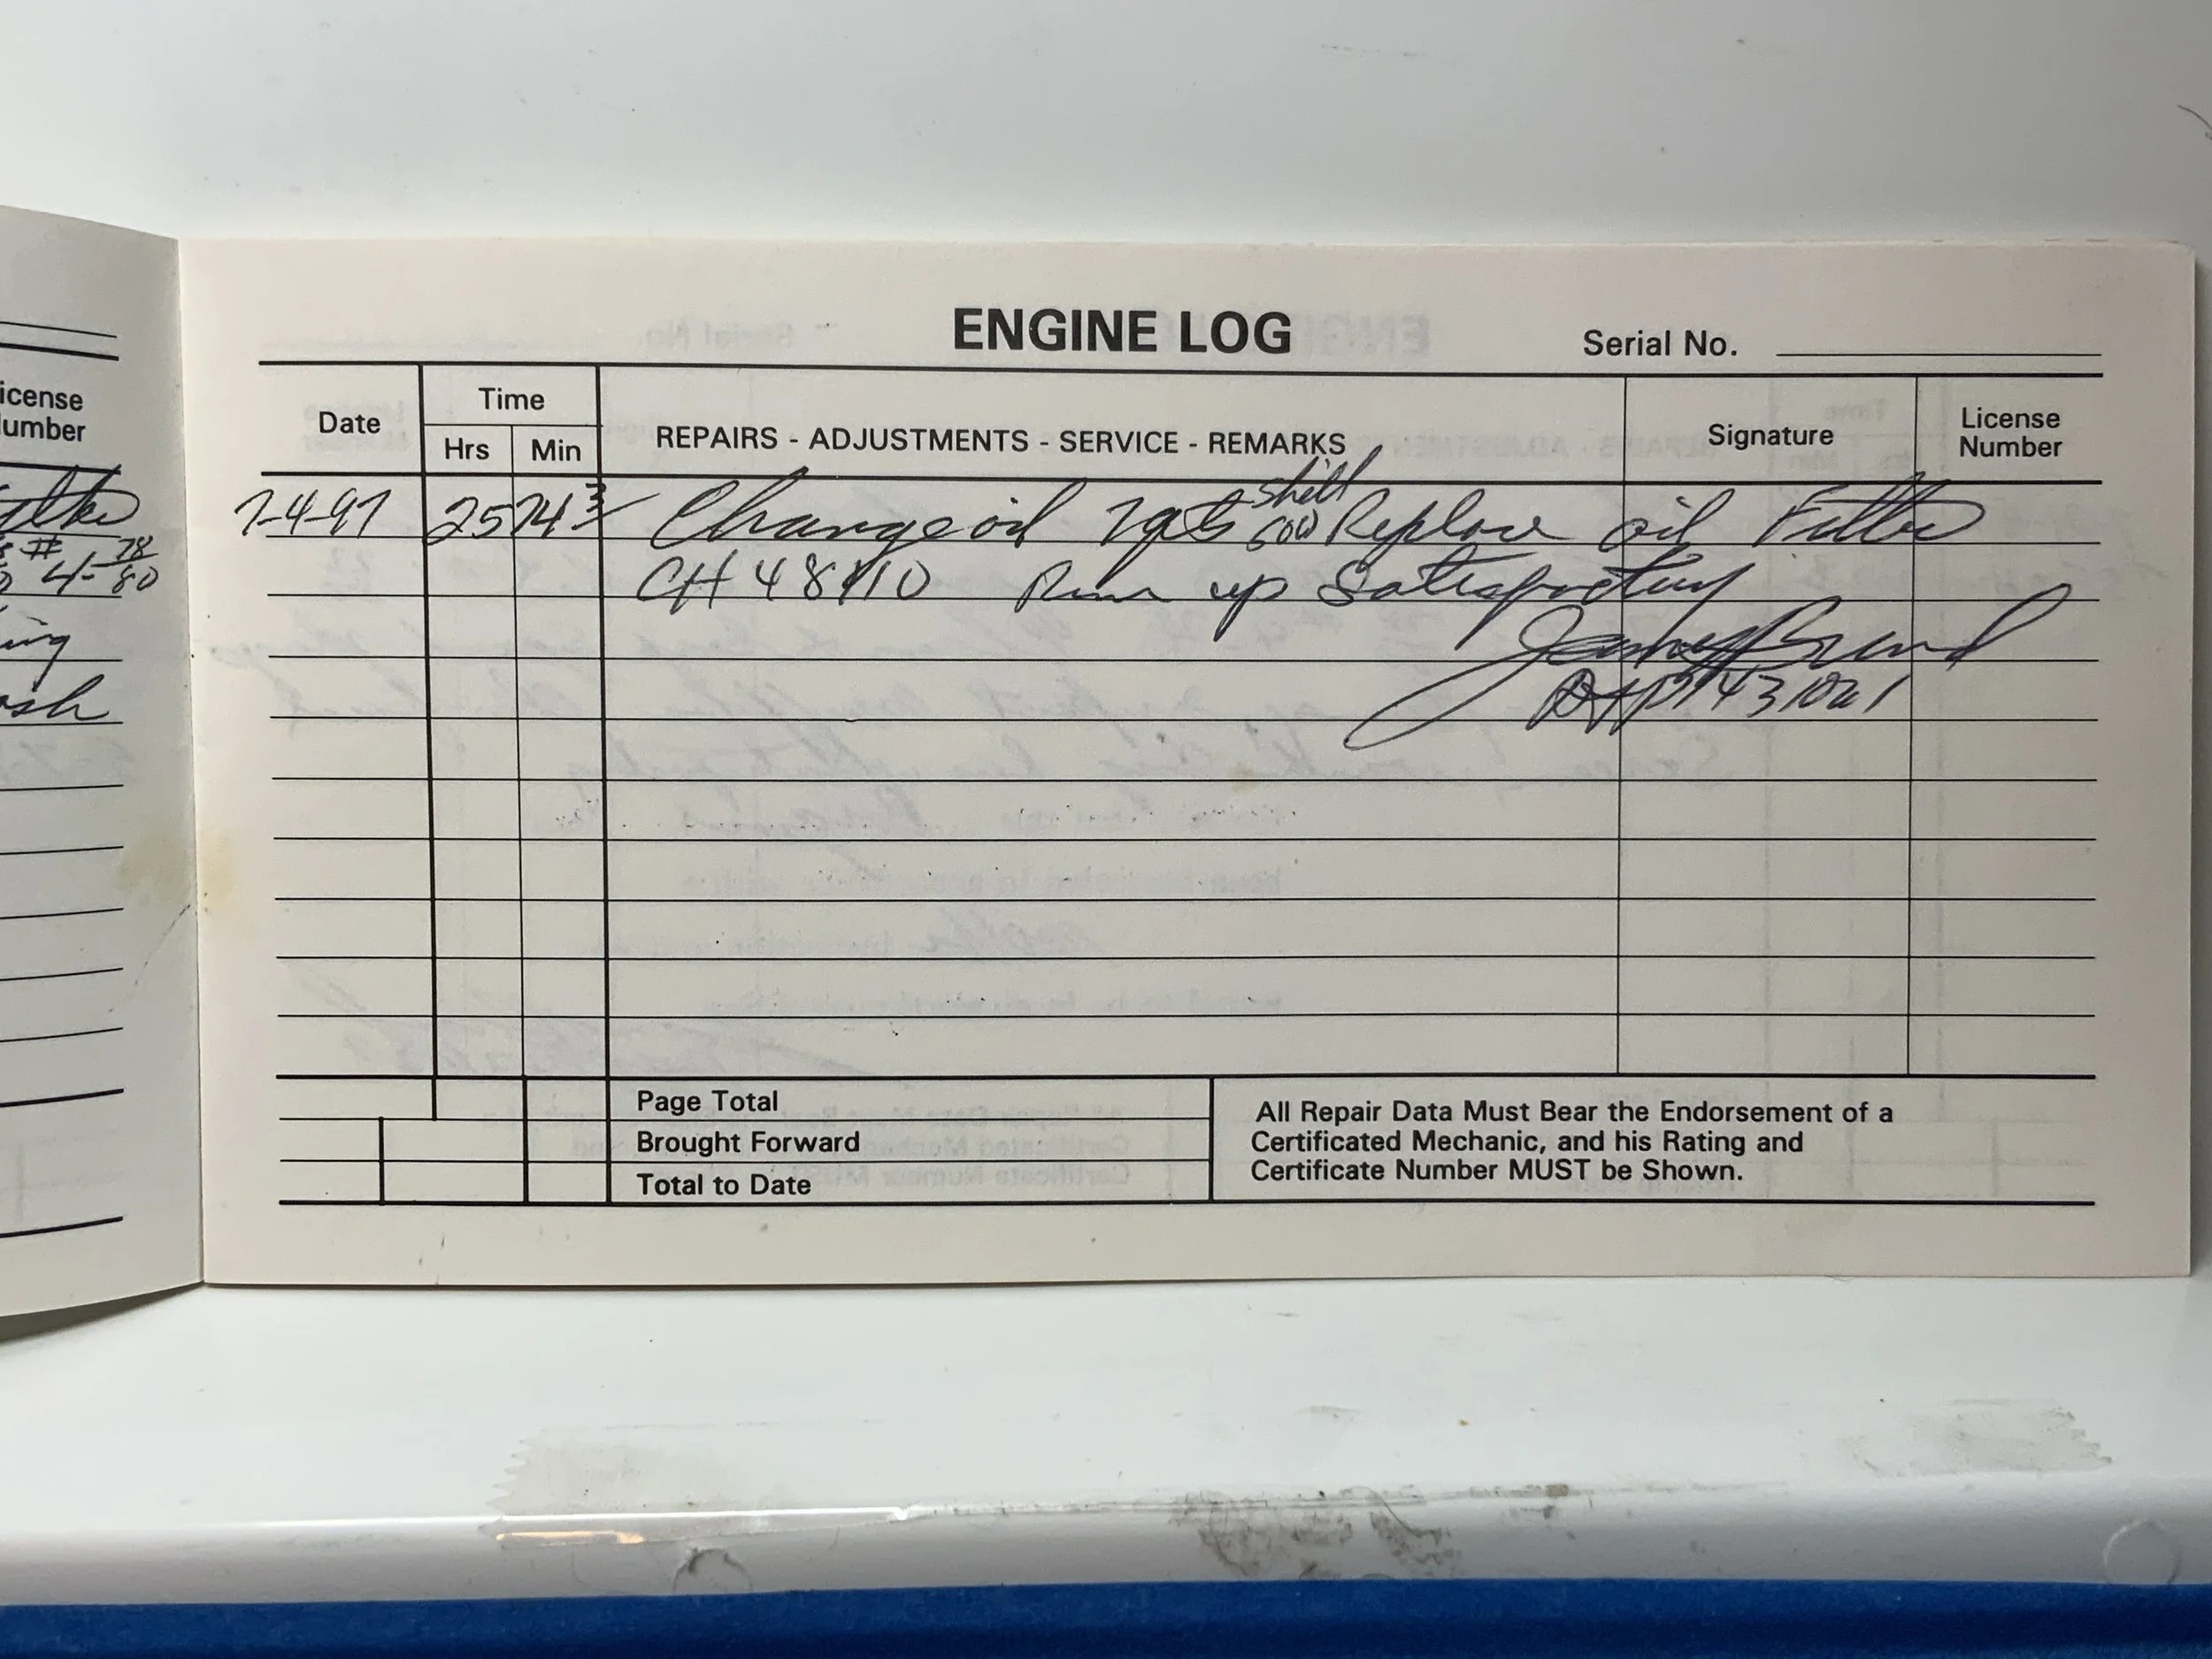 icense
umber
# 78
4-80
ing
ash
ENGINE LOG
Serial No.
Date
Time
Hrs
Min
REPAIRS - ADJUSTMENTS - SERVICE - REMARKS
Signature
License
Number
7-4-97 2574 3 Change oil 7qts shell 50W Replace oil Filter
CH48110 Run up Satisfactory
A&P
Page Total
Brought Forward
Total to Date
All Repair Data Must Bear the Endorsement of a
Certificated Mechanic, and his Rating and
Certificate Number MUST be Shown.